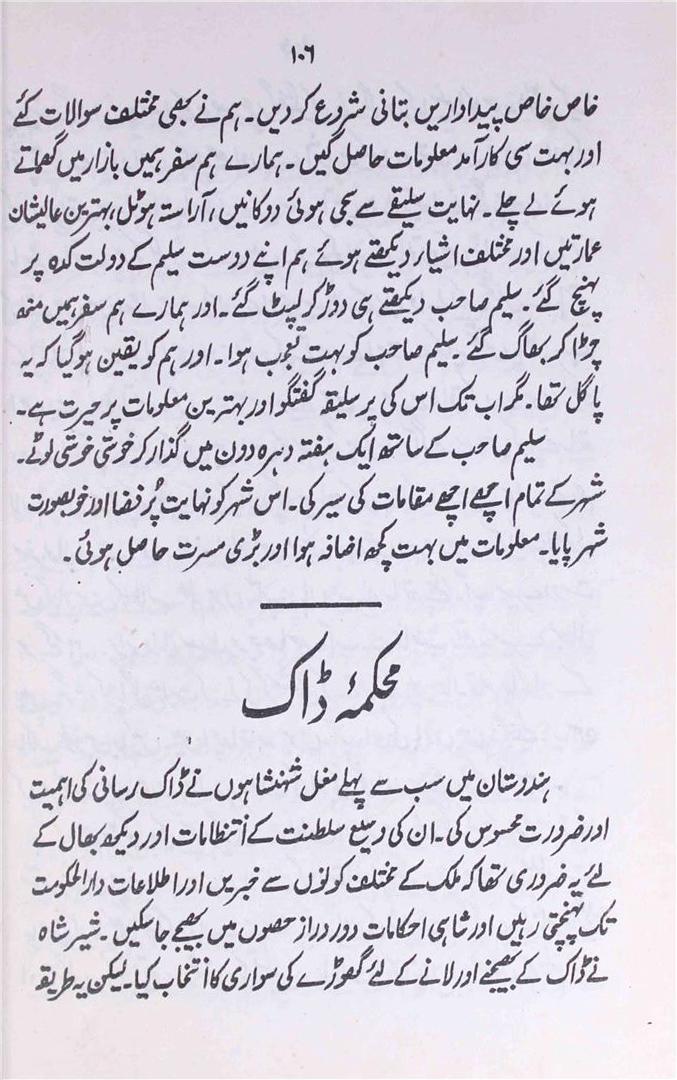 ۱۰۶
خاص خاص پیداواریں بتانی شروع کر دیں۔ ہم نے بھی مختلف سوالات کئے
اور بہت سی کارآمد معلومات حاصل کیں۔ ہمارے ہم سفر ہمیں بازار میں گھماتے
ہوئے لے چلے۔ نہایت سلیقے سے سجی ہوئی دوکانیں، آراستہ ہوٹل، بہترین عالیشان
عمارتیں اور مختلف اشیاء دیکھتے ہوئے ہم اپنے دوست سلیم کے دولت کدہ پر
پہنچ گئے۔ سلیم صاحب دیکھتے ہی دوڑ کر لپٹ گئے۔ اور ہمارے ہم سفر ہمیں منھ
چڑا کر بھاگ گئے۔ سلیم صاحب کو بہت تعجب ہوا۔ اور ہم کو یقین ہو گیا کہ یہ
پاگل تھا۔ مگر اب تک اس کی پر سلیقہ گفتگو اور بہترین معلومات پر حیرت ہے۔
سلیم صاحب کے ساتھ ایک ہفتہ دہرہ دون میں گذار کر خوشی خوشی لوٹے۔
شہر کے تمام اچھے اچھے مقامات کی سیر کی۔ اس شہر کو نہایت پُر فضا اور خوبصورت
شہر پایا۔ معلومات میں بہت کچھ اضافہ ہوا اور بڑی مسرت حاصل ہوئی۔
محکمۂ ڈاک
ہندرستان میں سب سے پہلے مغل شہنشاہوں نے ڈاک رسانی کی اہمیت
اور ضرورت محسوس کی۔ ان کی وسیع سلطنت کے انتظامات اور دیکھ بھال کے
لئے یہ ضروری تھا کہ ملک کے مختلف کونوں سے خبریں اور اطلاعات دارالحکومت
تک پہنچتی رہیں اور شاہی احکامات دور دراز حصوں میں بھیجے جا سکیں۔ شیر شاہ
نے ڈاک کے بھیجنے اور لانے کے لئے گھوڑے کی سواری کا انتخاب کیا۔ لیکن یہ طریقہ